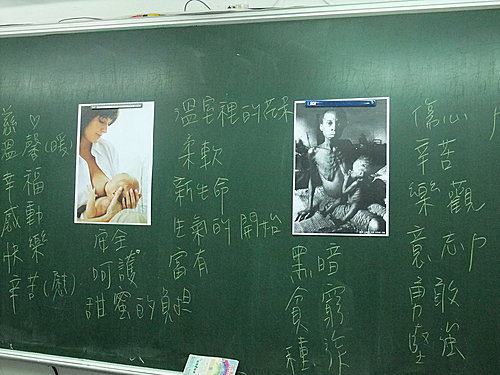 慈♡
溫馨(暖)
幸福
感動
快樂
辛苦(慰)
安全
呵護
甜蜜的負担
溫室裡的花朵
柔軟
新生命
生氣的開始
富有
黑暗
貧窮
種
傷心
辛苦
樂觀
意志力
勇敢
堅強